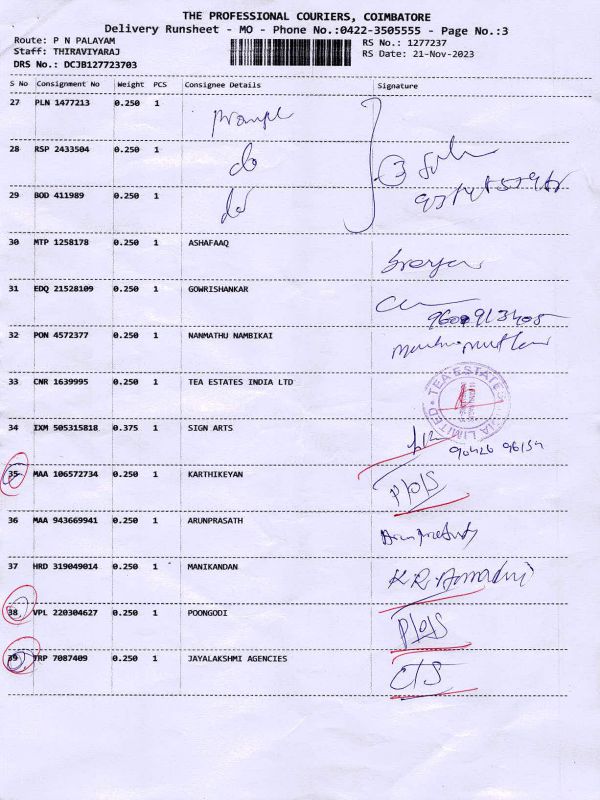 THE PROFESSIONAL COURIERS, COIMBATORE
Delivery Runsheet - MO - Phone No.:0422-3505555 - Page No.:3
Route: P N PALAYAM
Staff: THIRAVIYARAJ
DRS No.: DCJB127723703
RS No.: 1277237
RS Date: 21-Nov-2023
S No Consignment No Weight PCS Consignee Details Signature
27 PLN 1477213 0.250 1
28 RSP 2433504 0.250 1 do
29 BOD 411989 0.250 1 do
3
30 MTP 1258178 0.250 1 ASHAFAAQ
31 EDQ 21528109 0.250 1 GOWRISHANKAR
32 PON 4572377 0.250 1 NANMATHU NAMBIKAI
33 CNR 1639995 0.250 1 TEA ESTATES INDIA LTD
TEA ESTATES INDIA LIMITED
34 IXM 505315818 0.375 1 SIGN ARTS
35 MAA 106572734 0.250 1 KARTHIKEYAN
36 MAA 943669941 0.250 1 ARUNPRASATH
37 HRD 319049014 0.250 1 MANIKANDAN
38 VPL 220304627 0.250 1 POONGODI
39 TRP 7087409 0.250 1 JAYALAKSHMI AGENCIES CTS